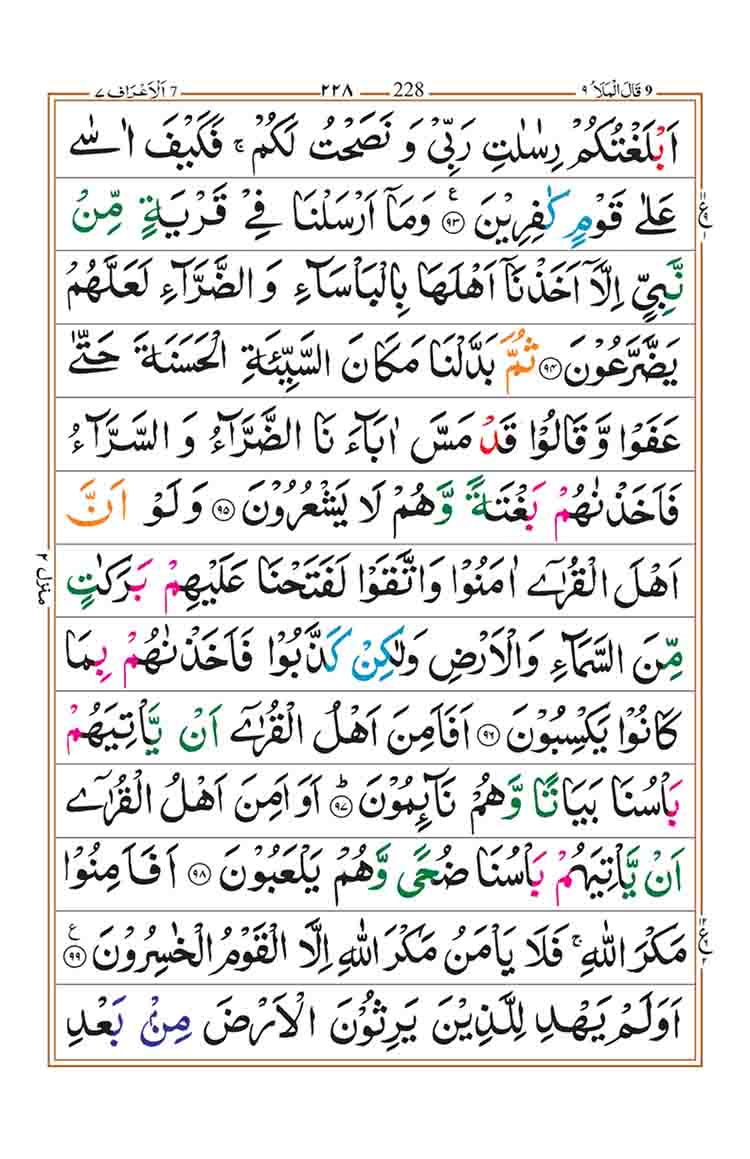 9 قَالَ الْمَلَاُ ٩ 228 ٢٢٨ 7 اَلْاَعْرَاف ٧
اَبْلَغْتُكُمْ رِسٰلٰتِ رَبِّیْ وَ نَصَحْتُ لَكُمْ ۚ فَكَیْفَ اٰسٰی
عَلٰی قَوْمٍ كٰفِرِیْنَ ﴿۹۳﴾ ع وَمَاۤ اَرْسَلْنَا فِیْ قَرْیَةٍ مِّنْ
نَّبِیٍّ اِلَّاۤ اَخَذْنَاۤ اَهْلَهَا بِالْبَاْسَآءِ وَالضَّرَّآءِ لَعَلَّهُمْ
یَضَّرَّعُوْنَ ﴿۹۴﴾ ثُمَّ بَدَّلْنَا مَكَانَ السَّیِّئَةِ الْحَسَنَةَ حَتّٰی
عَفَوْا وَّ قَالُوْا قَدْ مَسَّ اٰبَآءَ نَا الضَّرَّآءُ وَ السَّرَّآءُ
فَاَخَذْنٰهُمْ بَغْتَةً وَّ هُمْ لَا یَشْعُرُوْنَ ﴿۹۵﴾ وَلَوْ اَنَّ
اَهْلَ الْقُرٰۤی اٰمَنُوْا وَاتَّقَوْا لَفَتَحْنَا عَلَیْهِمْ بَرَكٰتٍ
مِّنَ السَّمَآءِ وَالْاَرْضِ وَلٰكِنْ كَذَّبُوْا فَاَخَذْنٰهُمْ بِمَا
كَانُوْا یَكْسِبُوْنَ ﴿۹۶﴾ اَفَاَمِنَ اَهْلُ الْقُرٰۤی اَنْ یَّاْتِیَهُمْ
بَاْسُنَا بَیَاتًا وَّ هُمْ نَآئِمُوْنَ ﴿۹۷﴾ؕ اَوَ اَمِنَ اَهْلُ الْقُرٰۤی
اَنْ یَّاْتِیَهُمْ بَاْسُنَا ضُحًی وَّ هُمْ یَلْعَبُوْنَ ﴿۹۸﴾ اَفَاَمِنُوْا
مَكْرَ اللّٰهِ ۚ فَلَا یَاْمَنُ مَكْرَ اللّٰهِ اِلَّا الْقَوْمُ الْخٰسِرُوْنَ ﴿۹۹﴾ ع
اَوَلَمْ یَهْدِ لِلَّذِیْنَ یَرِثُوْنَ الْاَرْضَ مِنْۢ بَعْدِ
منزل ٢